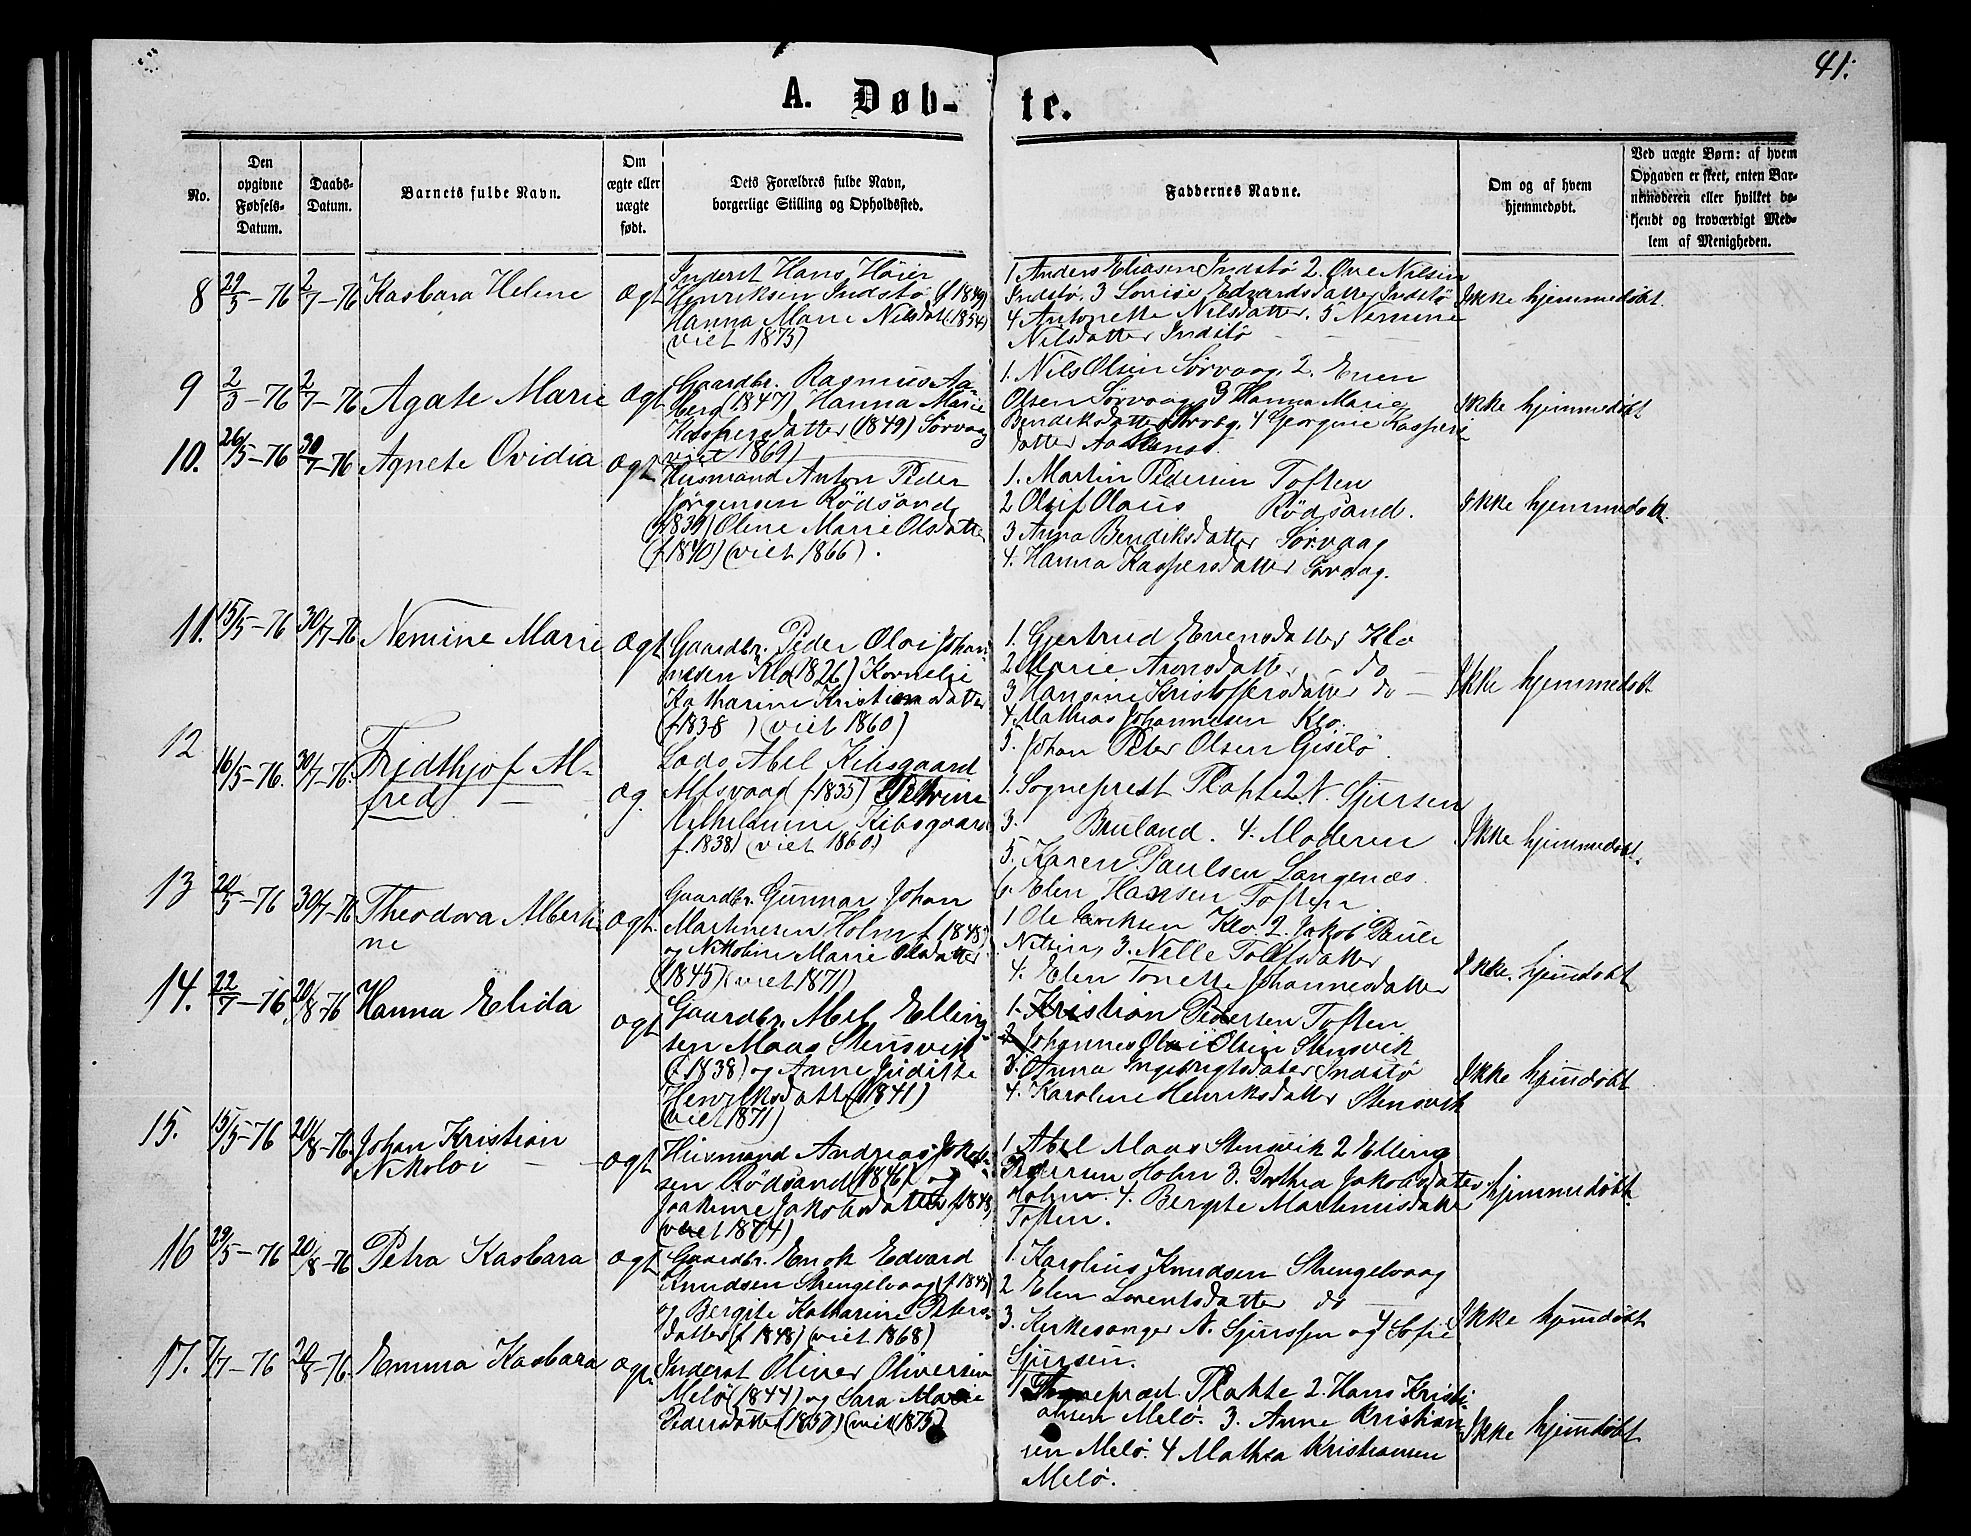 41.
A. Døb-te.
No.
Den opgivne Fødsels-Datum.
Daabs-Datum.
Barnets fulde Navn.
Om ægte eller uægte født.
Dets Forældres fulde Navn, borgerlige Stilling og Opholdssted.
Faddernes Navne.
Om og af hvem hjemmedøbt.
Ved uægte Børn: af hvem Opgaven er skeet, enten Barnemoderen eller hvilket bekjendt og troværdigt Medlem af Menigheden.
8 29/5-76 2/7-76 Kasbara Helene ægt
Inderst Hans Høier
Henriksen Indstø (f 1849)
Hanna Marie Nilsdat (1854)
(viet 1873)
1 Anders Eliasen Indstø 2. Ove Nilsen
Indstø, 3 Lovise Edvardsdatter Indstø
4 Antonette Nilsdatter. 5 Nemine
Nilsdatter Indstø
Ikke hjemmedøbt
9 2/3-76 2/7-76 Agate Marie ægt
Gaardbr. Rasmus Aa-
berg (1847) Hanna Marie
Kaspersdatter (1849) Sørvaag
viet 1869)
1. Nils Olsen Sørvaag, 2. Even
Olsen Sørvaag 3 Hanna Marie
Bendiksdatter 4 Georgine Kaspers
datter
Ikke hjemmedøbt
10. 26/5-76 30/7-76 Agnete Ovidia ægt
Husmand Anton Peder
Jørgensen Rødsand
(f 1839) Olene Marie Olsdatter
(f. 1840) (viet 1866).
1. Martin Pedersen Toften
2 Oluf Olaus Rødsand.
3 Anna Bendiksdatter Sørvaag
4. Hanna Kaspersdatter Sørvaag.
Ikke hjemmedøbt.
11. 15/5-76 30/7-76 Nemine Marie ægt
Gaardbr. Peder Olai Johan-
nesen Klo (1826) Kornelie
Katharine Kristiansdatter
(f. 1838) (viet 1860)
1. Gjertrud Evensdatter Klo
2 Marie Aronsdatter - do -
3 Hansine Kristoffersdatter do -
4. Mathias Johannesen Klo.
5. Johan Peter Olsen Gisslø
Ikke hjemmedøbt
12 16/5-76. 30/7-76. Fridthjof Al-
fred
æg.
Lods Abel Kibsgaard
Alfsvaag f 1835) Petrine
Vilhelmine Kibsgaard
f. 1838) (viet 1860)
1. Sogneprest Plahte 2 N. Sjursen
3. Bruland. 4. Moderen
5. Karen Paulsen Langenæs.
6. Elen Hansen Toften
Ikke hjemmedøbt.
13 20/5-76 30/7-76 Theodora Alberti
ne
ægt.
Gaardbr. Gunnar Johan
Martinesen Holm f. 1848)
og Nikoline Marie Olsdatter
(1845) (viet 1871)
1 Ole Eriksen Klo. 2. Jakob Pauli
Nilsen, 3. Nelle Tollfsdatter
4. Elen Tonette Johannesdatter
Ikke. hjemdøbt
14. 22/7-76. 20/8-76 Hanna Elida ægt
Gaardbr. Abel Elling-
sen Maas Stensvik
(f. 1838) og Anne Juditte
Henriksdatter (1841)
(viet 1871)
1. Kristian Pedersen Toften
2 Johannes Olai Olsen Stensvik
3. Anna Ingebrigtsdatter Indstø
4. Karoline Henriksdatter Stensvik
Ikke hjemdøbt
15. 15/5-76 20/8-76. Johan Kristian
Nikolai
ægt
Husmand Andreas Jakob-
sen Rødsand (1846) og
Joakime Jakobsdatter f. 1848
(viet 1874)
1. Abel Maas Stensvik 2 Elling
Pedersen Holm 3. Dorthea Jakobsdatter
Holm. 4. Bergite Martinusdatter
Toften.
hjemmedøbt
16 29/5-76 20/8-76 Petra Kasbara ægt
Gaardbr. Enok Edvard
Knudsen Strengelvaag (f 1843)
og Bergite Katharine Peters-
datter (f. 1848) (viet 1868)
1. Karolius Knudsen Strengelvaag
2 Elen Lorentsdatter do
3. Kirkesanger N. Sjurssen og 4 Sofie
Sjursen.
Ikke hjemdøbt
17. 7/7-76 20/8-76. Emma Kasbara ægt.
Inderst Oliver Oliversen
Melø (1844) og Sara Marie
Pedersdatter (1837) (viet 1875)
1 Sogneprest Plahte 2. Hans Kristi-
ansen Melø. 3. Anne Kristian-
sen Melø. 4 Mathea Kristiansen
Melø.
Ikke hjemdøbt